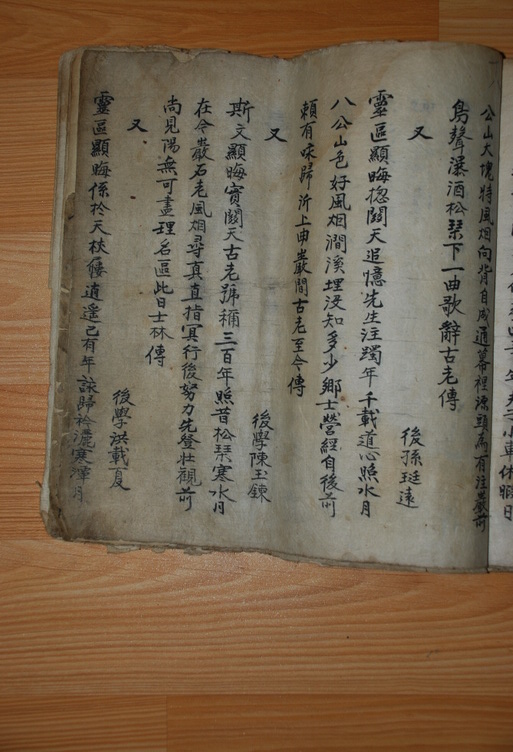 公山大傀特風烟向背自成通幕裡源頭為有注嚴前
鳥聲瀑洒松琹下一曲歌辭古老傳
又
後孫珽遠
靈區顯晦揔關天追憶先生注躅年千載道心照水月
八公山色好風烟澗溪埋沒知多少鄉士營經自後前
頼有味歸沂上曲巌間古老至今傳
又
後學陳玉鍊
斯文顯晦實關天古老號稱三百年照昔松琹寒水月
在今巌石老風烟尋真直指冥行後努力先登壮觀前
尚見陽無可畫理名區此日士林傳
又
後學洪載夏
靈區顯晦係於天杖屨逍遥已有年詠歸衿灑寒潭月